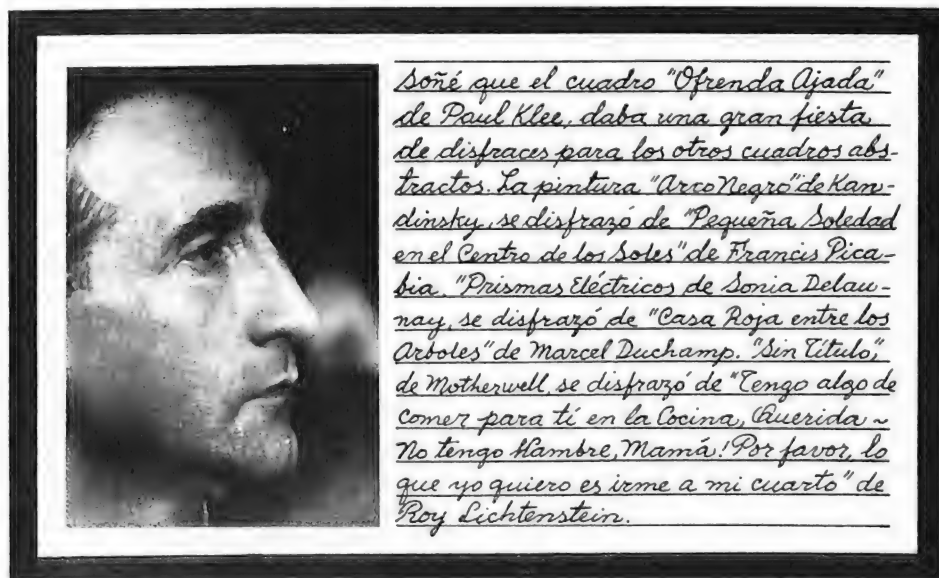 Soñé que el cuadro "Ofrenda Ajada"
de Paul Klee, daba una gran fiesta
de disfraces para los otros cuadros abs-
tractos. La pintura "Arco Negro" de Kan-
dinsky, se disfrazó de "Pequeña Soledad
en el Centro de los Soles" de Francis Pica-
bia. "Prismas Eléctricos de Sonia Delau-
nay, se disfrazó de "Casa Roja entre los
Arboles" de Marcel Duchamp. "Sin Título",
de Motherwell, se disfrazó de "Tengo algo de
comer para tí en la Cocina, Querida ~
No tengo Hambre, Mamá! Por favor, lo
que yo quiero es irme a mi cuarto" de
Roy Lichtenstein.